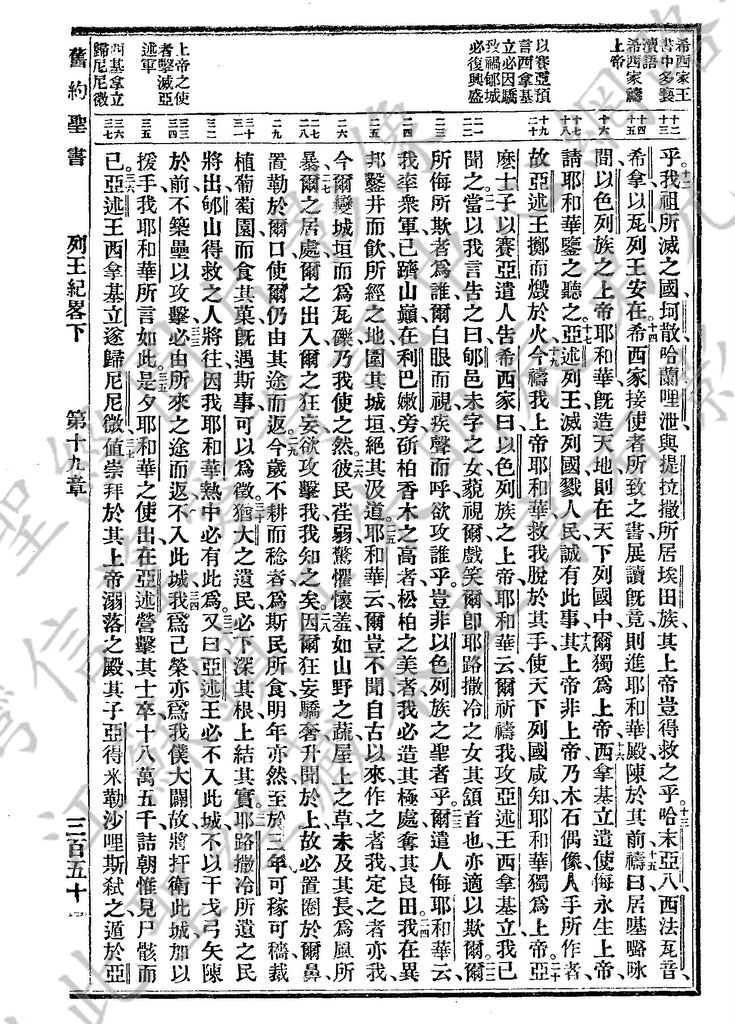 希西家王
書中多褻
瀆語
希西家禱
上帝
以賽亞預
言西拿基
立必因驕
致禍郇城
必復興盛
上帝之使
者擊滅亞
述軍
西基拿立
歸尼尼微
十二
十三
十四
十五
十六
十七
十八
十九
二十
二一
二二
二三
二四
二五
二六
二七
二八
二九
三十
三一
三二
三三
三四
三五
三六
三七
乎。十二我祖所滅之國、坷散、哈蘭、哩泄、與提拉撒所居埃田族、其上帝豈得救之乎。十三哈末、亞八、西法瓦音、
希拿、以瓦、列王安在。十四希西家接使者所致之書、展讀旣竟、則進耶和華殿、陳於其前、十五禱曰、居𠼻𡀔𠲖
間、以色列族之上帝耶和華、旣造天地、則在天下列國中、爾獨爲上帝、十六西拿基立遣使侮永生上帝、
請耶和華鑒之聽之。十七亞述列王滅列國、戮人民、誠有此事、十八其上帝非上帝、乃木石偶像、人手所作者、
故亞述王擲而燬於火。十九今禱我上帝耶和華救我、脫於其手、使天下列國咸知耶和華獨爲上帝。二十亞
麽士子以賽亞遣人告希西家曰、以色列族之上帝耶和華云、爾祈禱我、攻亞述王西拿基立、我已
聞之。二一當以我言告之曰、郇邑未字之女、藐視爾、戲笑爾、卽耶路撒冷之女、其頷首也、亦適以欺爾。二二爾
所侮所欺者爲誰、爾白眼而視、疾聲而呼、欲攻誰乎、豈非以色列族之聖者乎。二三爾遣人侮耶和華云、
我率衆軍、已躋山巔、在利巴嫩旁、斫柏香木之高者、松柏之美者、我必造其極處、奪其良田。二四我在異
邦、鑿井而飲、所經之地、圍其城垣、絕其汲道。二五耶和華云、爾豈不聞自古以來、作之者我、定之者亦我、
今爾變城垣而爲瓦礫、乃我使之然。二六彼民荏弱、驚懼懷羞、如山野之蔬、屋上之草、未及其長、爲風所
暴。二七爾之居處、爾之出入、爾之狂妄、欲攻擊我、我知之矣。二八因爾狂妄驕奢、升聞於上、故必置圈於爾鼻、
置勒於爾口、使爾仍由其途而返。二九今歲不耕而稔者、爲斯民所食、明年亦然、至於三年、可稼可穡、栽
植葡萄園而食其菓、旣遇斯事、可以爲徵。三十猶大之遺民、必下深其根、上結其實、三一耶路撒冷所遺之民、
將出郇山、得救之人將往、因我耶和華熱中、必有此爲。三二又曰、亞述王必不入此城、不以干戈弓矢陳
於前、不築壘以攻擊、三三必由所來之途而返、不入此城。三四我爲己榮、亦爲我僕大闢故、將扞衛此城、加以
援手、我耶和華所言如此。三五是夕耶和華之使出、在亞述營、擊其士卒十八萬五千、詰朝惟見尸骸而
已。三六亞述王西拿基立遂歸尼尼微、三七値崇拜於其上帝溺落之殿、其子亞得米勒、沙哩斯弒之、遁於亞
舊約聖書
列王紀畧下
第十九章
三百五十一